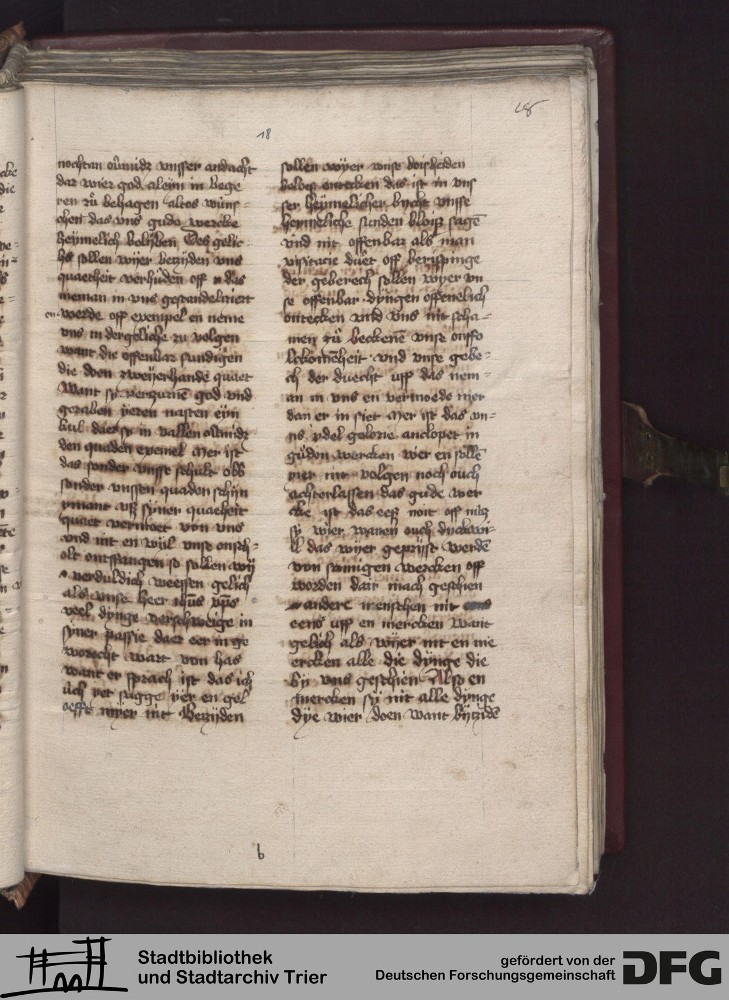 18
nochtan ouͤmidz vnsser andacht
dar wier god aleyn in bege
ren zuͦ behagen altos wuns-
chen das vns gude wercke
heymelich beliben Des gelic
hs sollen wijer bezijden vns
quaetheit verhuden off das
nieman in vns gescandelizeert
werde off exempel en neme
vns in dergeliche zu volgen
want die offenbar sundigen
die doen zweijerhande quaet
Want sy verzurnen god vnd
graben yeren nasten eyn
kul daer sy in vallen ouͤmidz
den quaden exempel Mer ist
das sonder vnsse schult obs
sonder vnssen quaden schijn
ymant vsz syner quaetheit
quaet vermoet von vns
vnd nit en wijl vnse onsch-
olt ontffangen so sollen wij
verduldich weessen gelich
als vnse heer ihūs xp̄us
veel dynge verschweige in
syner passie daer eer in ge
want er sprach ist das ich
uch yet sagge yer en gel
oefft mijer nit Bezijden
sollen wijer
ontecken das ist in vns
ser heymelicher bycht vnsse
heymeliche sunden blosz sagē
vnd nit offenbar als man
visitacie duet off berispinge
der geberech sollen wijer vn
se offenbar dyngen offenelich
ontecken vnd vns nit scha-
men zuͦ bekenē vnse onffo
lckomēheit vnd vnse gebe-
ch der duecht vff das niem-
an in vns en vermoede mer
dan er in siet Mer ist das
ydel glorie anclopet in
guden wercken wer en sollē
yer nit volgen noch ouch
achterlassen das gude wer
cke ist das eesz
sy wijer waren ouch
ll das wijer geprijst werdē
von sainigen wercken off
worden dair mach geschien
andere menschen nit
eens vff en mercken want
gelich als wijer nit en me
ercken alle die dynge die
by vns geschien Also en
mercken sy nit alle dynge
dye wier doen want bijzidē
b
Stadtbibliothek
und Stadtarchiv Trier
gefördert von der
Deutschen Forschungsgemeinschaft
DFG